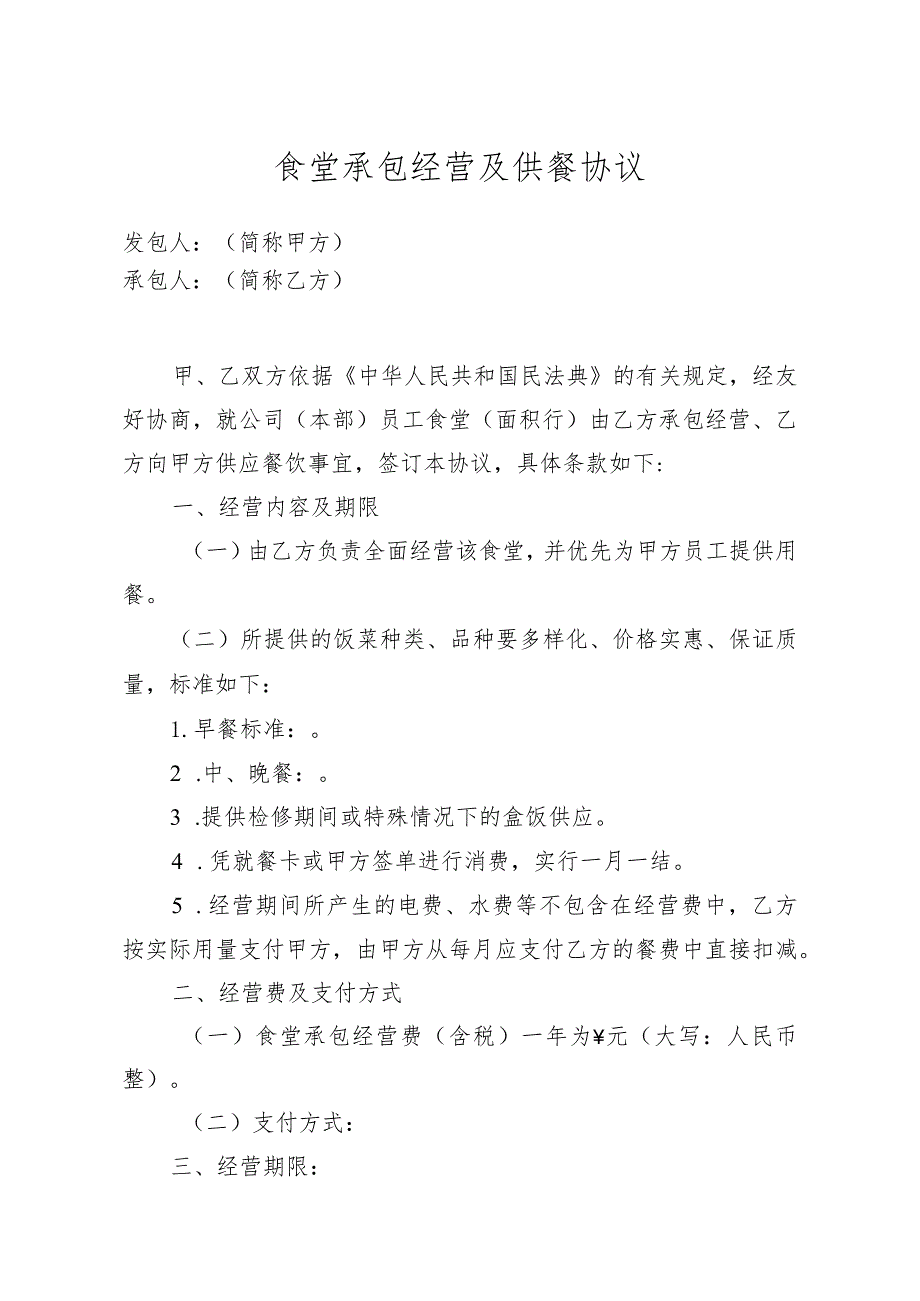 食堂承包经营及供餐协议
发包人：（简称甲方）
承包人：（简称乙方）
甲、乙双方依据《中华人民共和国民法典》的有关规定，经友
好协商，就公司（本部）员工食堂（面积行）由乙方承包经营、乙
方向甲方供应餐饮事宜，签订本协议，具体条款如下：
一、经营内容及期限
（一）由乙方负责全面经营该食堂，并优先为甲方员工提供用
餐。
（二）所提供的饭菜种类、品种要多样化、价格实惠、保证质
量，标准如下：
1. 早餐标准：。
2 .中、晚餐：。
3 .提供检修期间或特殊情况下的盒饭供应。
4 . 凭就餐卡或甲方签单进行消费，实行一月一结。
5 . 经营期间所产生的电费、水费等不包含在经营费中，乙方
按实际用量支付甲方，由甲方从每月应支付乙方的餐费中直接扣减。
二、经营费及支付方式
（一）食堂承包经营费（含税）一年为¥元（大写：人民币
整）。
（二）支付方式：
三、经营期限：